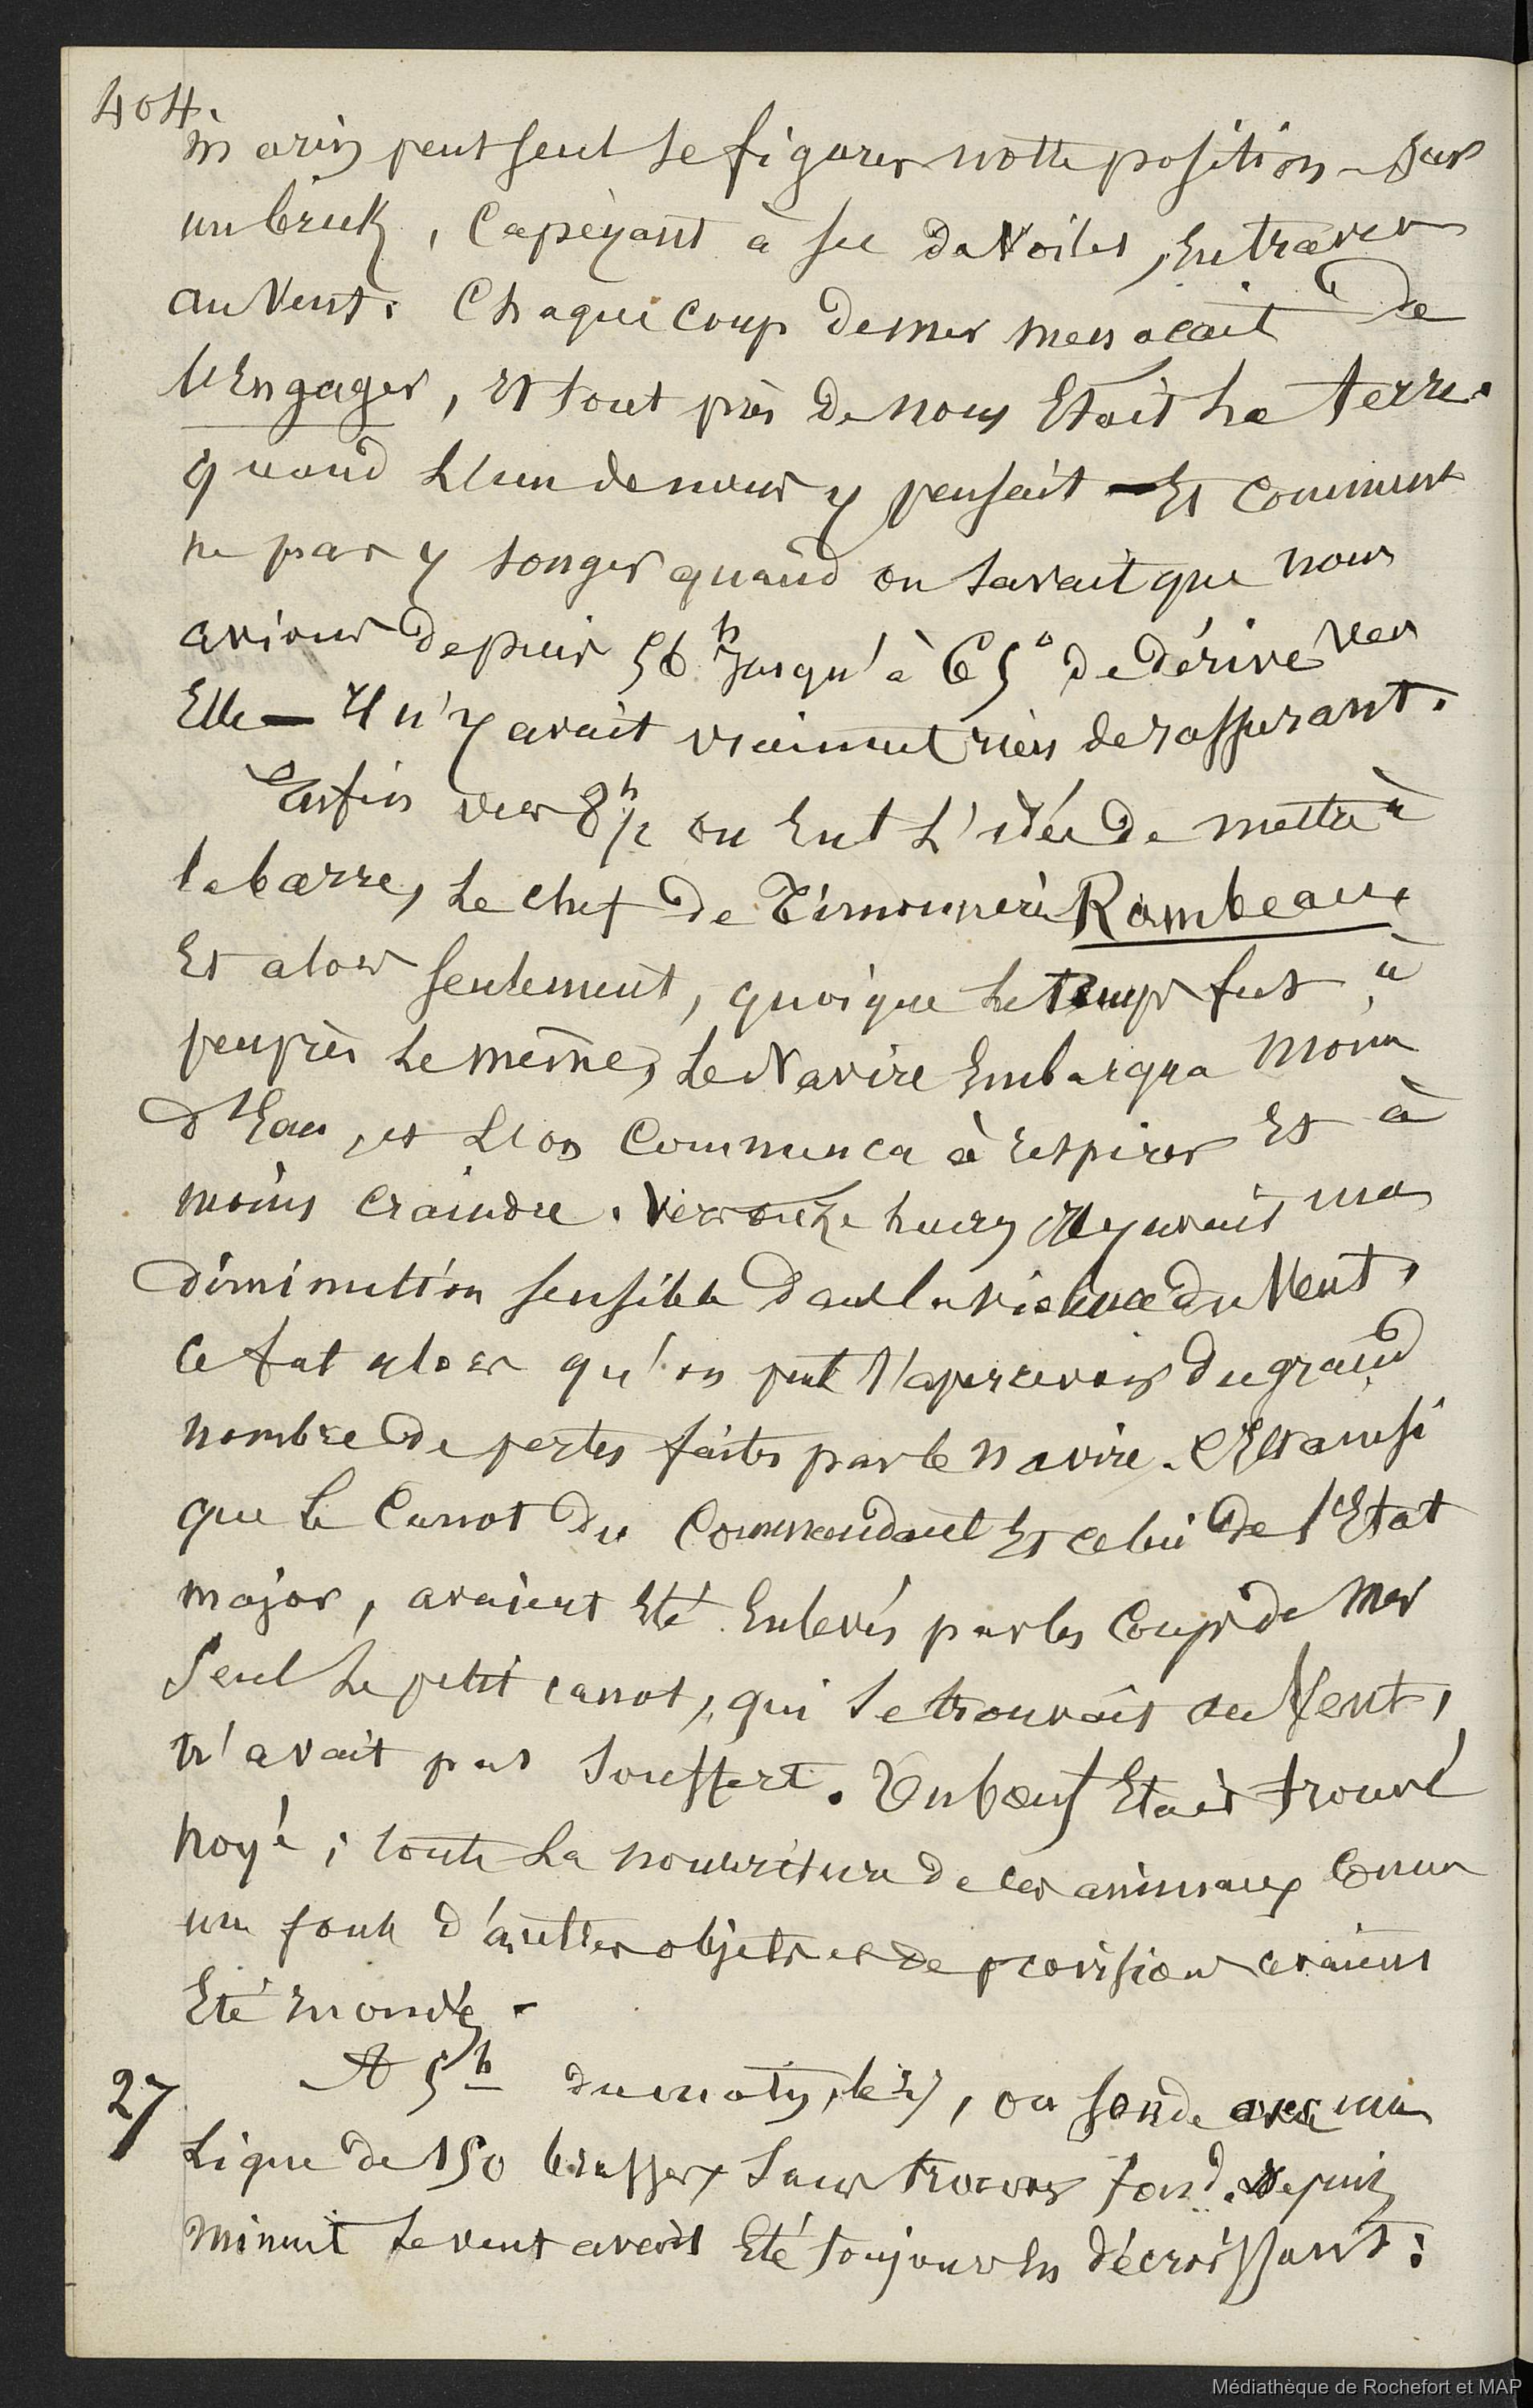 404.
marin peut seul se figurer notte position - sur
un brick, Capeyant à sec de Voiles, En travers
au Vent. Chaque coup de mer menaçait de
l'Engager, Et tout près de nous Etait La terre.
quand L'un de nous y pensait - Et comment
ne pas y songer quand on savait que nous
avions depuis 56h Jusqu'à 65° de dérive vers
Elle - Il n'y avait vraiment rien de rassurant.
Enfin vers 8h 1/2 on Eut L'idée de mettre à
la barre, Le chef de Timonnerie Rambeaux
Et alors seulement, quoique Le temps fut à
peu près Le même, Le Navire Embarqua moins
d'Eau, et L'on Commenca à respirer Et à
moins craindre. Vers onze heures Il y avait une
diminution sensible dans la violence du Vent,
Ce fut alors qu'on put s'apercevoir du grand
nombre de pertes faites par le navire. C'Est ainsi
que le Canot du Commandant Et celui de l'Etat
major, avaient Eté Enlevés par les Coups de Mer
Seul Le petit canot, qui se trouvait au Vent,
n'avait pas souffert. Un bœuf Etait trouvé
noyé; toute La nourriture de ces animaux Comme
une foule d'autres objets et de provisions avaient
Eté inondés -
27 A 5h du matin, le 27, on sonde avec une
Ligne de 150 brasses, Sans trouver fond. Depuis
minuit Le vent avait Eté toujours En décroissant:
Médiathèque de Rochefort et MAP